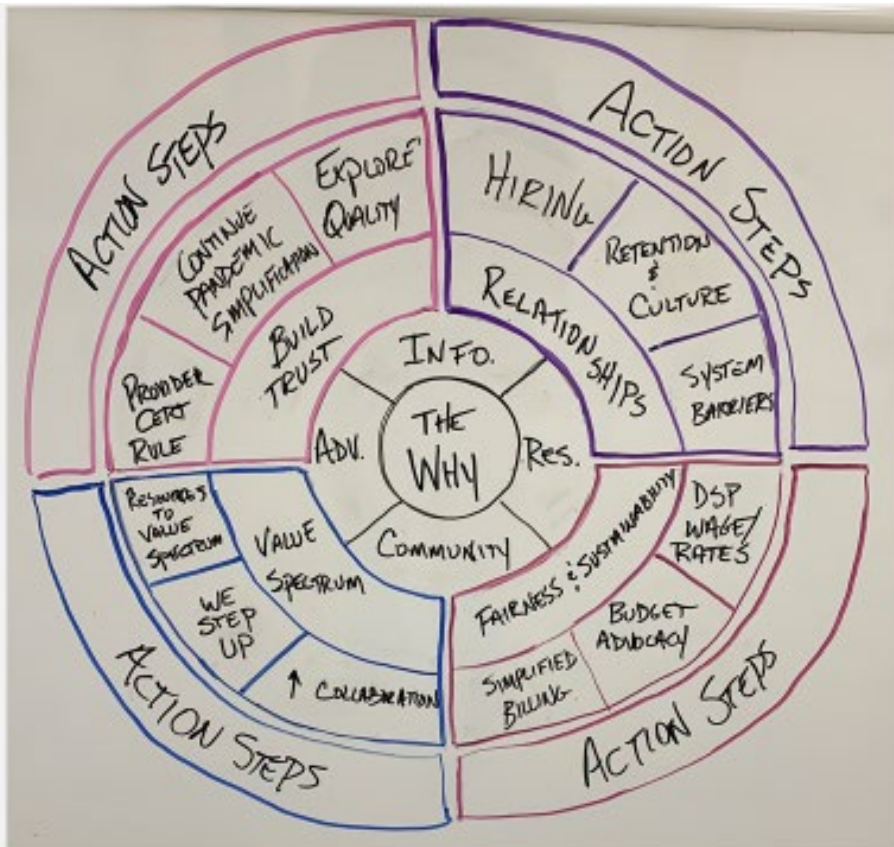 ACTION STEPS
EXPLORE
QUALITY
CONTINUE
PANDEMIC
SIMPLIFICATION
PROVIDER
CERT
RULE
BUILD
TRUST
ACTION STEPS
HIRING
RETENTION
&
CULTURE
SYSTEM
BARRIERS
RELATIONSHIPS
INFO.
ADV.
THE
WHY
RES.
COMMUNITY
RESOURCES
TO
VALUE
SPECTRUM
VALUE
SPECTRUM
WE
STEP
UP
↑ COLLABORATION
ACTION STEPS
FAIRNESS & SUSTAINABILITY
DSP
WAGE/
RATES
BUDGET
ADVOCACY
SIMPLIFIED
BILLING
ACTION STEPS